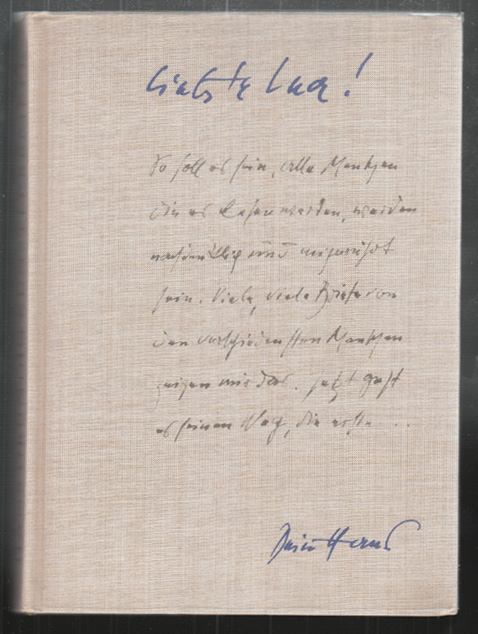 Liebste Luca!
So soll es sein, alle Menschen
die es lesen werden, werden
nachdenklich und angerührt
sein. Viele, viele Briefe von
den verschiedensten Menschen
zeigen mir das. Jetzt geht
es seinen Weg, die erste ...
Dein